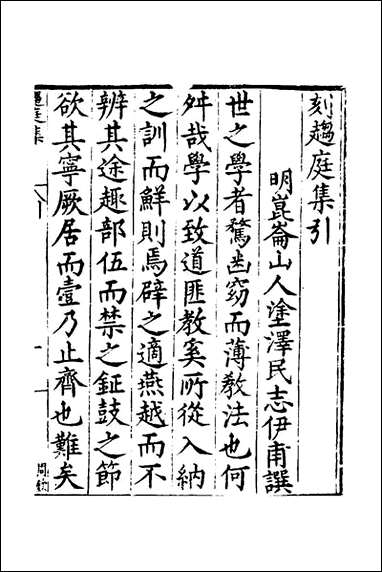 刻趨庭集引
明崑崙山人塗澤民志伊甫譔
世之學者騖幽窈而薄教法也何
舛哉學以致道匪教奚所從入納
之訓而鮮則焉辟之適燕越而不
辨其途趣部伍而禁之鉦鼓之節
欲其寧厥居而壹乃止齊也難矣
趨庭集